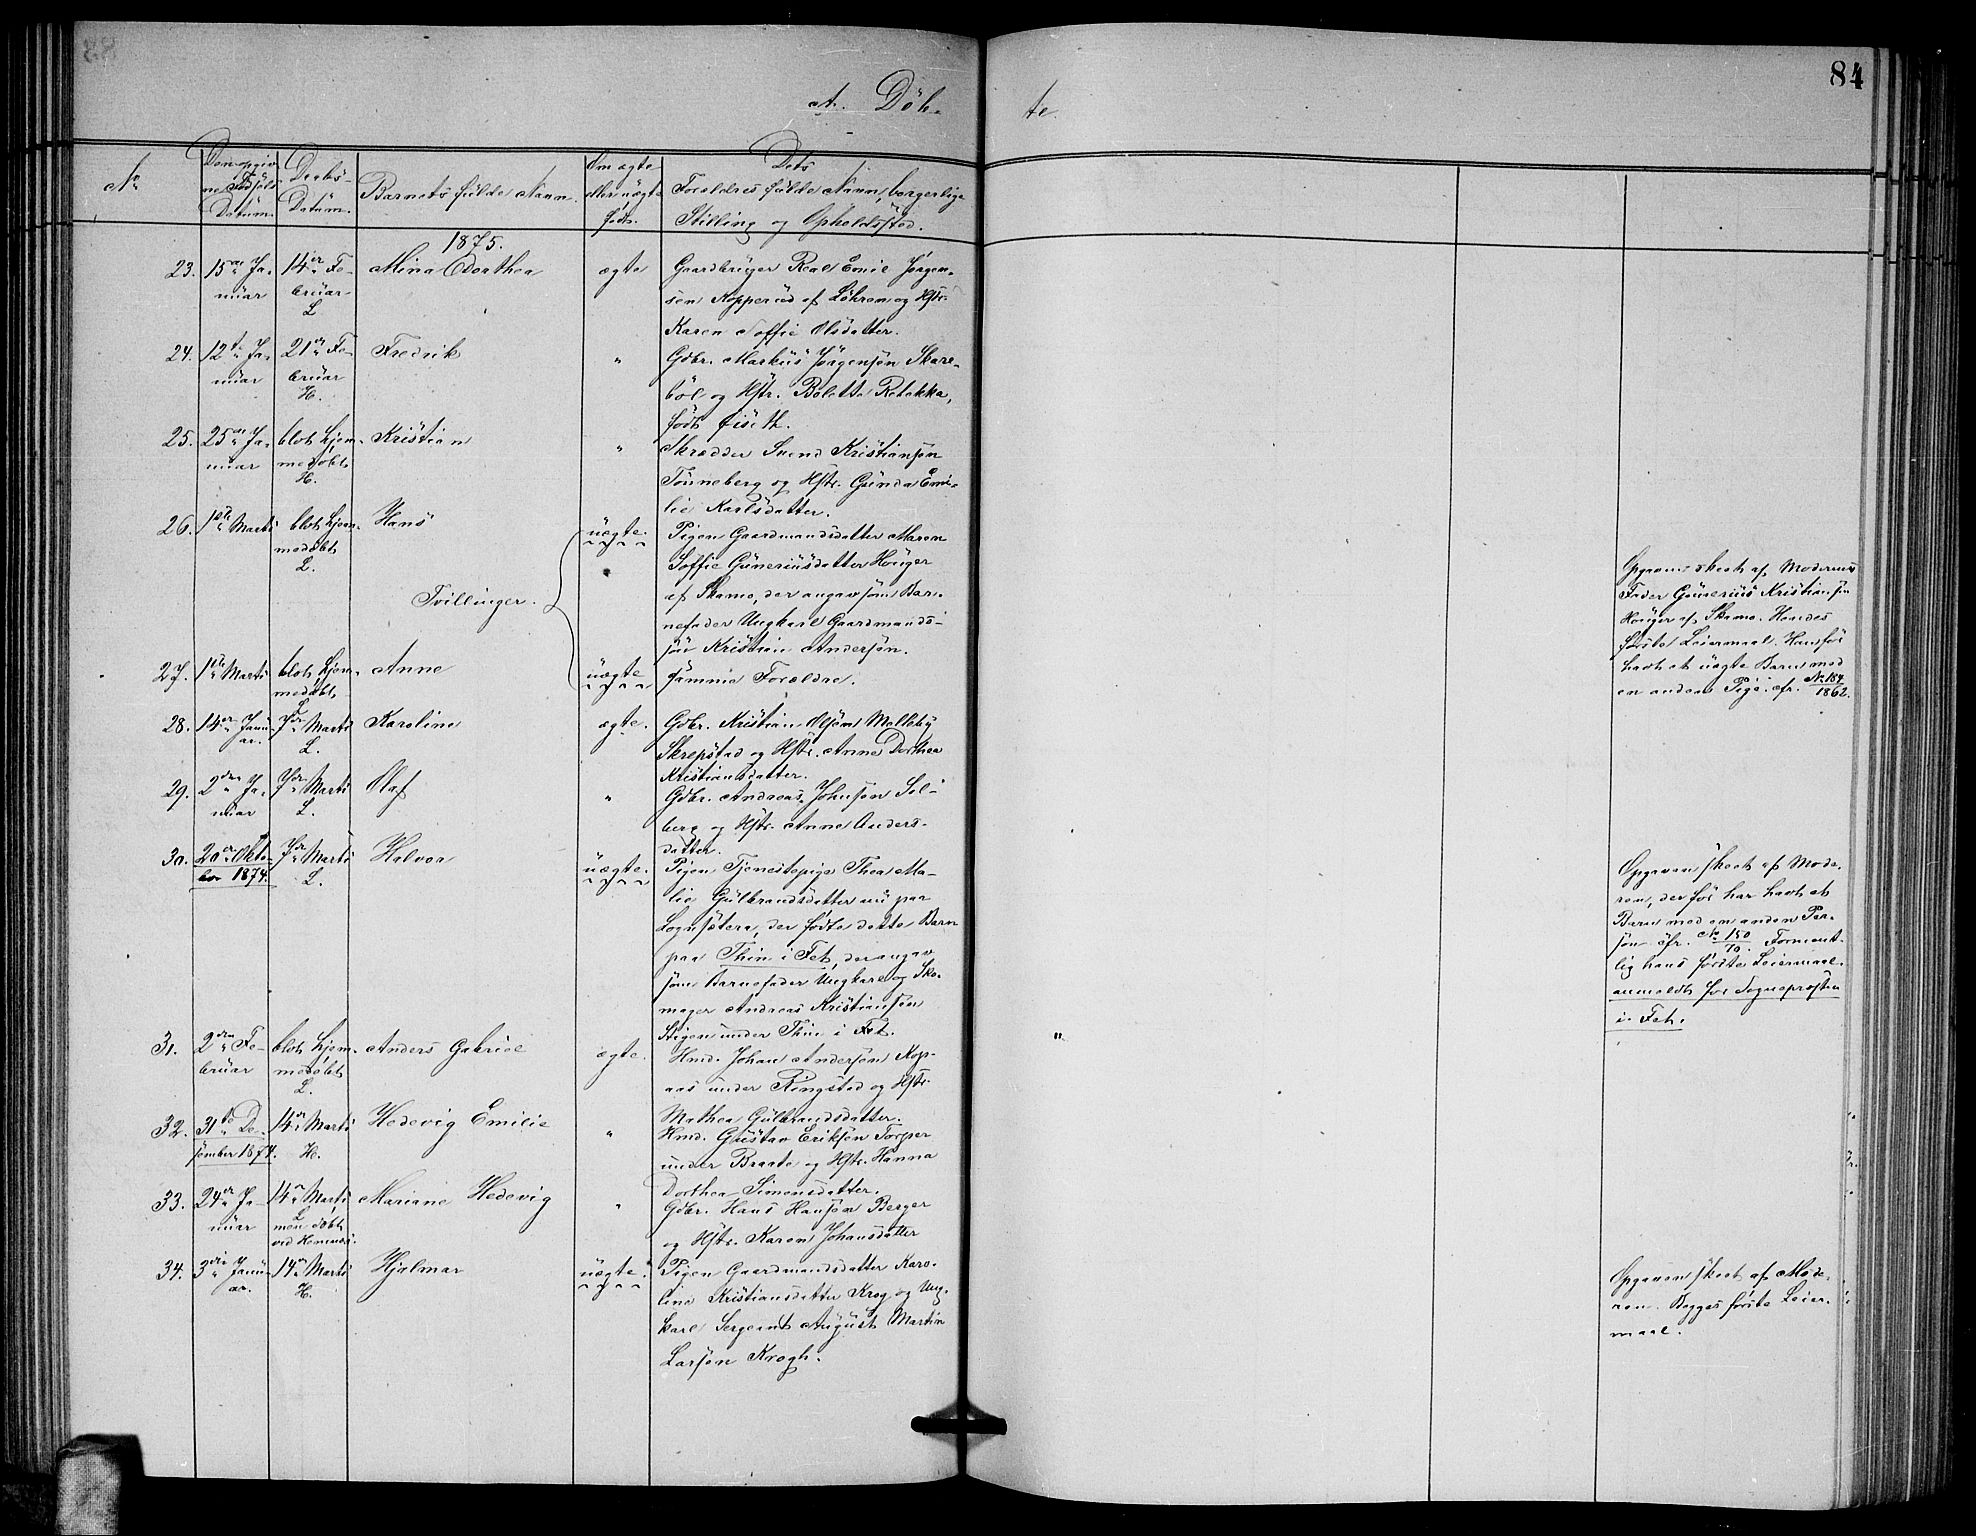 84
A. Döb-
te.
No
Den opgiv
ne Fødsels
Datüm.
Daabs-
Datüm.
Barnets fülde Navn.
Om ægte
eller uægte
født.
Dets
Forældres fülde Navn, borgerlige
Stilling og Opholdssted.
1875.
23.
15de Ja-
nüar
14er Fe-
brüar
L
Mina Dorthea
ægte
Gaardbrüger Real Emil Jörgen-
sen Kopperüd af Löhren og Hstr.
Karen Soffie Olsdatter.
24.
12te Ja-
nüar
21de Fe-
brüar
H.
Fredrik
"
Gdbr. Markus Jörgensön Skare-
böl og Hstr. Bolette Rebekka,
födt Eiseth.
25.
25de Ja-
nüar
blot hjem-
medöbt
H.
Kristian
"
Skrædder Svend Kristiansön
Tönneberg og Hstr. Günda Emi-
lie Karlsdatter.
26.
1ste Marts
blot hjem-
medöbt
L.
Hans
uægte.
Pigen Gaardmandsdatter Maren
Soffie Güneriüsdatter Hönger
af Skamo, der angav som Bar-
nefader Ungkarl Gaardmands-
sön Kristian Andersön.
Tvillinger.
Opgaven skeet af Moderens
Fader Güneriüs Kristiansön
Hönger af Skamo. Hendes
første Leiermaal. Han før
havt et uægte Barn med
en anden Pige. cfr. No 184/1862.
27.
1ste Marts
blot hjem-
medöbt
L
Anne
uægte
samme Forældre.
28.
14er Janü-
ar.
7de Marts
L.
Karoline
ægte.
Gdbr. Kristian Olsön Melleby
Skrepstad og Hstr. Anne Dorthea
Kristiansdatter.
29.
2den Ja-
nüar
7de Marts
L.
Olaf
"
Gdbr. Andreas Johnsön Sol-
berg og Hstr. Anne Anders-
datter.
30.
20er Okto-
ber 1874.
7de Marts
L.
Halvor
uægte.
Pigen Tjenestepige Thea Ma-
lie Gülbrandsdatter nü paa
Lognsætera, der födte dette Barn
paa Thin i Fet, der angav
som Barnefader Ungkarl og Sko-
mager Andreas Kristiansön
Stigen under Thin i Fet.
Opgaven skeet af Mode-
ren, der før har havt et
Barn med en anden Per-
son cfr. No 150/70. Forment-
lig hans første Leiermaal.
anmeldt for Sognepresten
i Fet.
31.
2den Fe-
brüar
blot hjem-
medöbt
L
Anders Gabriel
ægte.
Hmd. Johan Andersön Kop-
aas under Ringstad og Hstr.
Mathea Gülbrandsdatter.
32.
31te De-
sember 1874.
14de Marts
H.
Hedevig Emilie
"
Hmd. Güstav Eriksön Torper
under Braate og Hstr. Hanna
Dorthea Simensdatter.
33.
24er Ja-
nüar
14de Marts
L
men döbt
ved Hemnæs.
Mariane Hedevig
"
Gdbr. Hans Hansön Berger
og Hstr. Karen Johansdatter
34.
3die Janü-
ar.
14de Marts
H.
Hjalmar
uægte.
Pigen Gaardmandsdatter Karo-
line Kristiansdatter Krog og Ung-
karl Sergeant August Martin
Larsön Krogh.
Opgaven skeet af Mode-
ren. Begges første Leier-
maal.